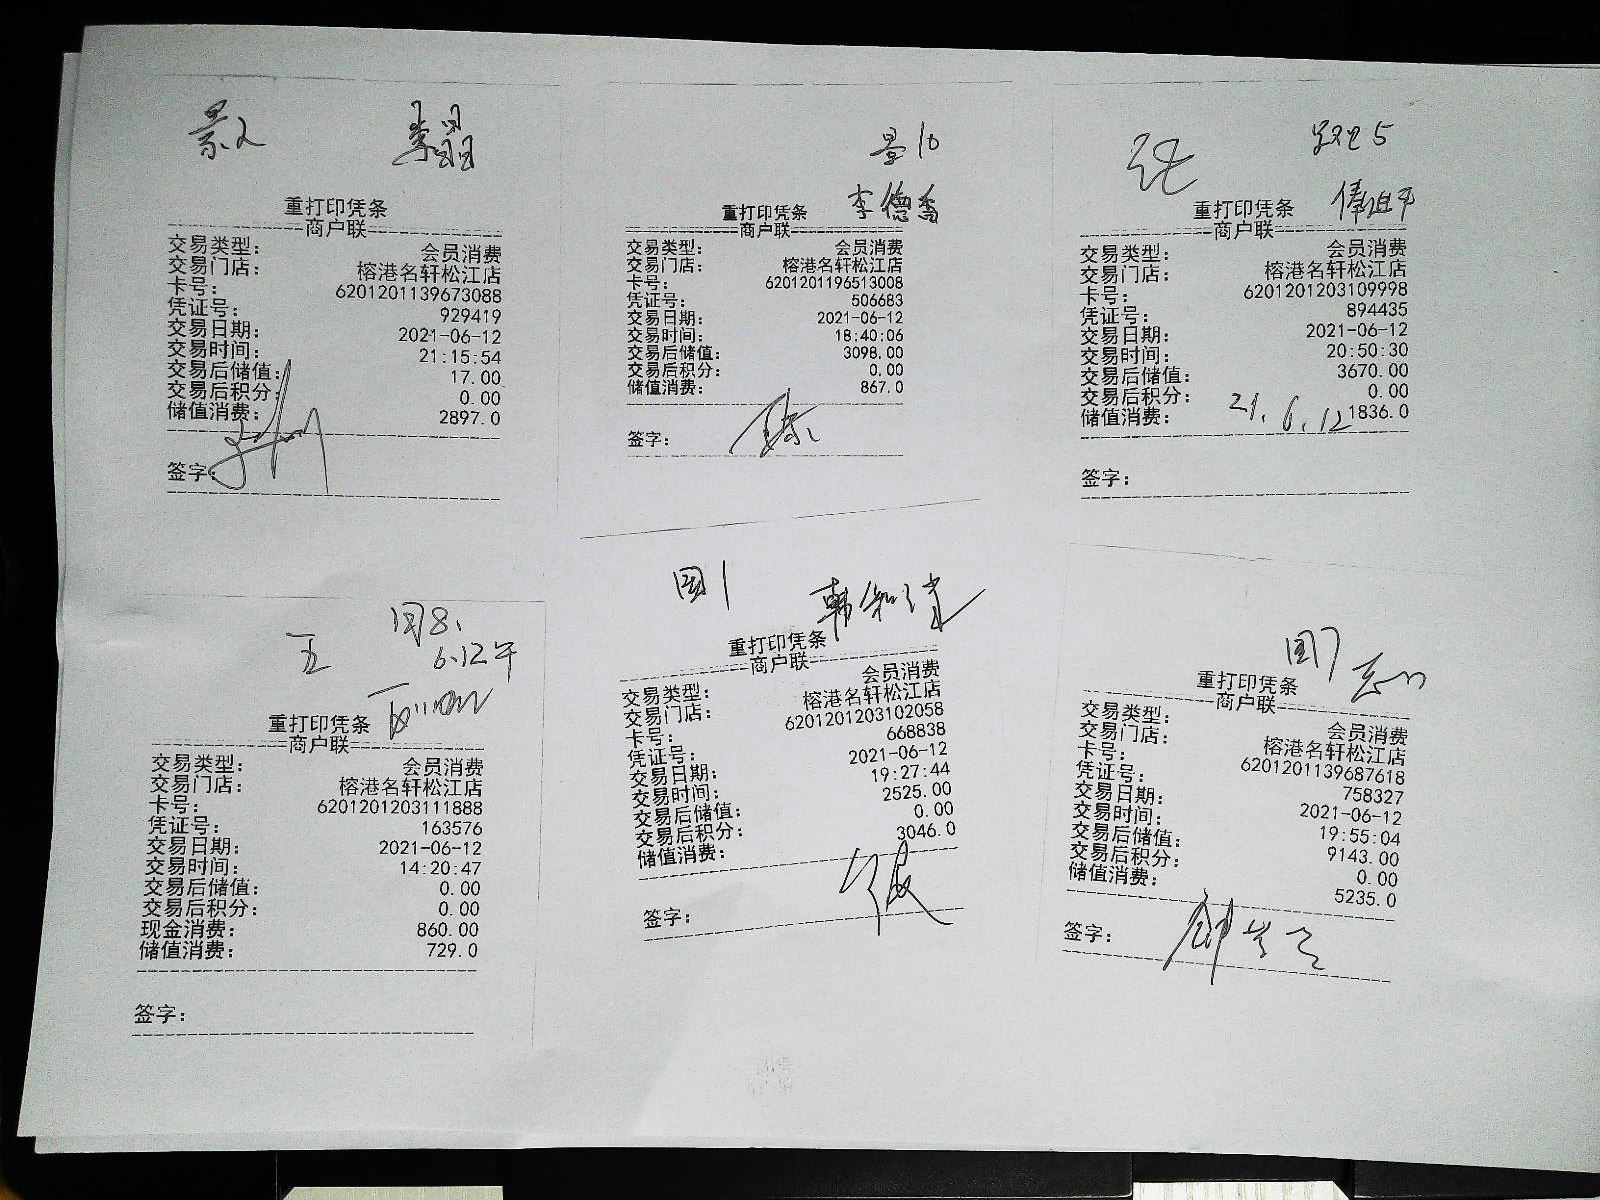 景2 李晶
重打印凭条
商户联
交易类型: 会员消费
交易门店: 榕港名轩松江店
卡号: 6201201139673088
凭证号: 929419
交易日期: 2021-06-12
交易时间: 21:15:54
交易后储值: 17.00
交易后积分: 0.00
储值消费: 2897.0
签字:
景10
李德香
重打印凭条
商户联
交易类型: 会员消费
交易门店: 榕港名轩松江店
卡号: 6201201196513008
凭证号: 506683
交易日期: 2021-06-12
交易时间: 18:40:06
交易后储值: 3098.00
交易后积分: 0.00
储值消费: 867.0
签字:
5
重打印凭条
商户联
交易类型: 会员消费
交易门店: 榕港名轩松江店
卡号: 6201201203109998
凭证号: 894435
交易日期: 2021-06-12
交易时间: 20:50:30
交易后储值: 3670.00
交易后积分: 0.00
储值消费: 1836.0
21.6.12
签字:
8、
王 6.12午
重打印凭条
商户联
交易类型: 会员消费
交易门店: 榕港名轩松江店
卡号: 6201201203111888
凭证号: 163576
交易日期: 2021-06-12
交易时间: 14:20:47
交易后储值: 0.00
交易后积分: 0.00
现金消费: 860.00
储值消费: 729.0
签字:
国1
重打印凭条
商户联
交易类型: 会员消费
交易门店: 榕港名轩松江店
卡号: 6201201203102058
凭证号: 668838
交易日期: 2021-06-12
交易时间: 19:27:44
交易后储值: 2525.00
交易后积分: 0.00
储值消费: 3046.0
签字:
国7
重打印凭条
商户联
交易类型: 会员消费
交易门店: 榕港名轩松江店
卡号: 6201201139687618
凭证号: 758327
交易日期: 2021-06-12
交易时间: 19:55:04
交易后储值: 9143.00
交易后积分: 0.00
储值消费: 5235.0
签字: